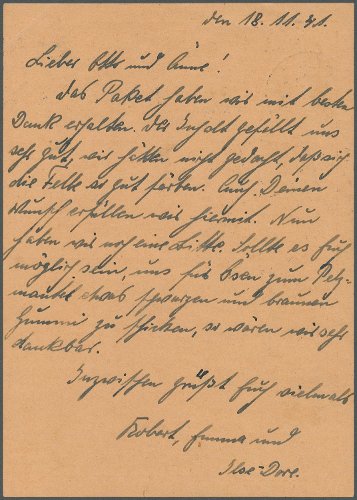 den 18. 11. 41.
Lieber Otto und Änne!
Das Paket haben wir mit besten
Dank erhalten. Der Inhalt gefällt uns
sehr gut, wir hätten nicht gedacht, daß sich
die Felle so gut färben. Auch Deinen
Wunsch erfüllen wir hiermit. Nun
haben wir noch eine Bitte. Sollte es Euch
möglich sein, uns für Ösen zum Pelz-
mantel etwas schwarzen und braunen
Gummi zu schicken, so wären wir sehr
dankbar.
Inzwischen grüßt Euch vielmals
Robert, Emma und
Ilse-Dore.